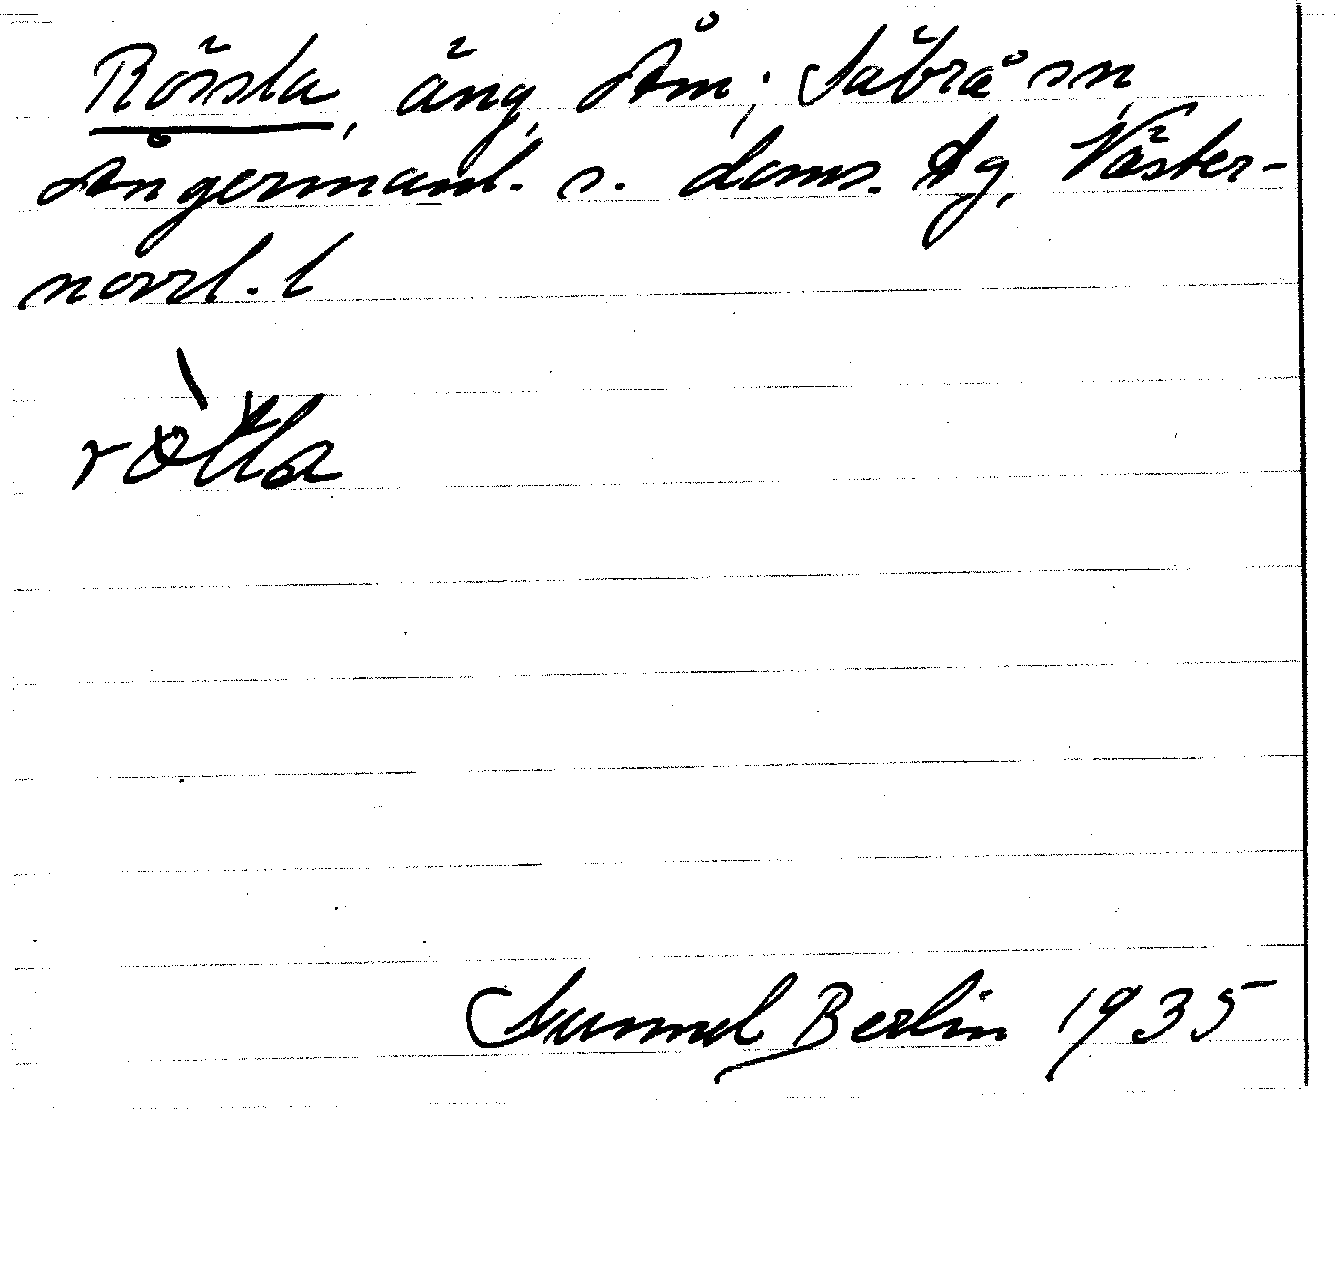 Rössla, äng, Åm; Säbrå sn,
Ångermanl. s. doms. Ag, Väster-
norrl. l
Gunnel Berlin 1935